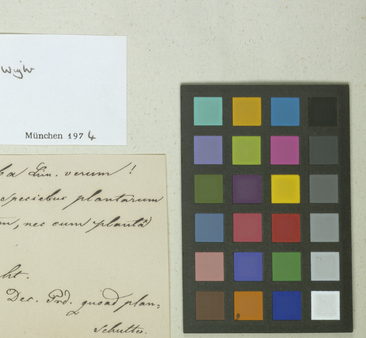 Wight
München 1974
Lin. verum!
speciebus plantarum
nec cum planta
ht.
Dec. Prd. quoad plan=
Schultes.